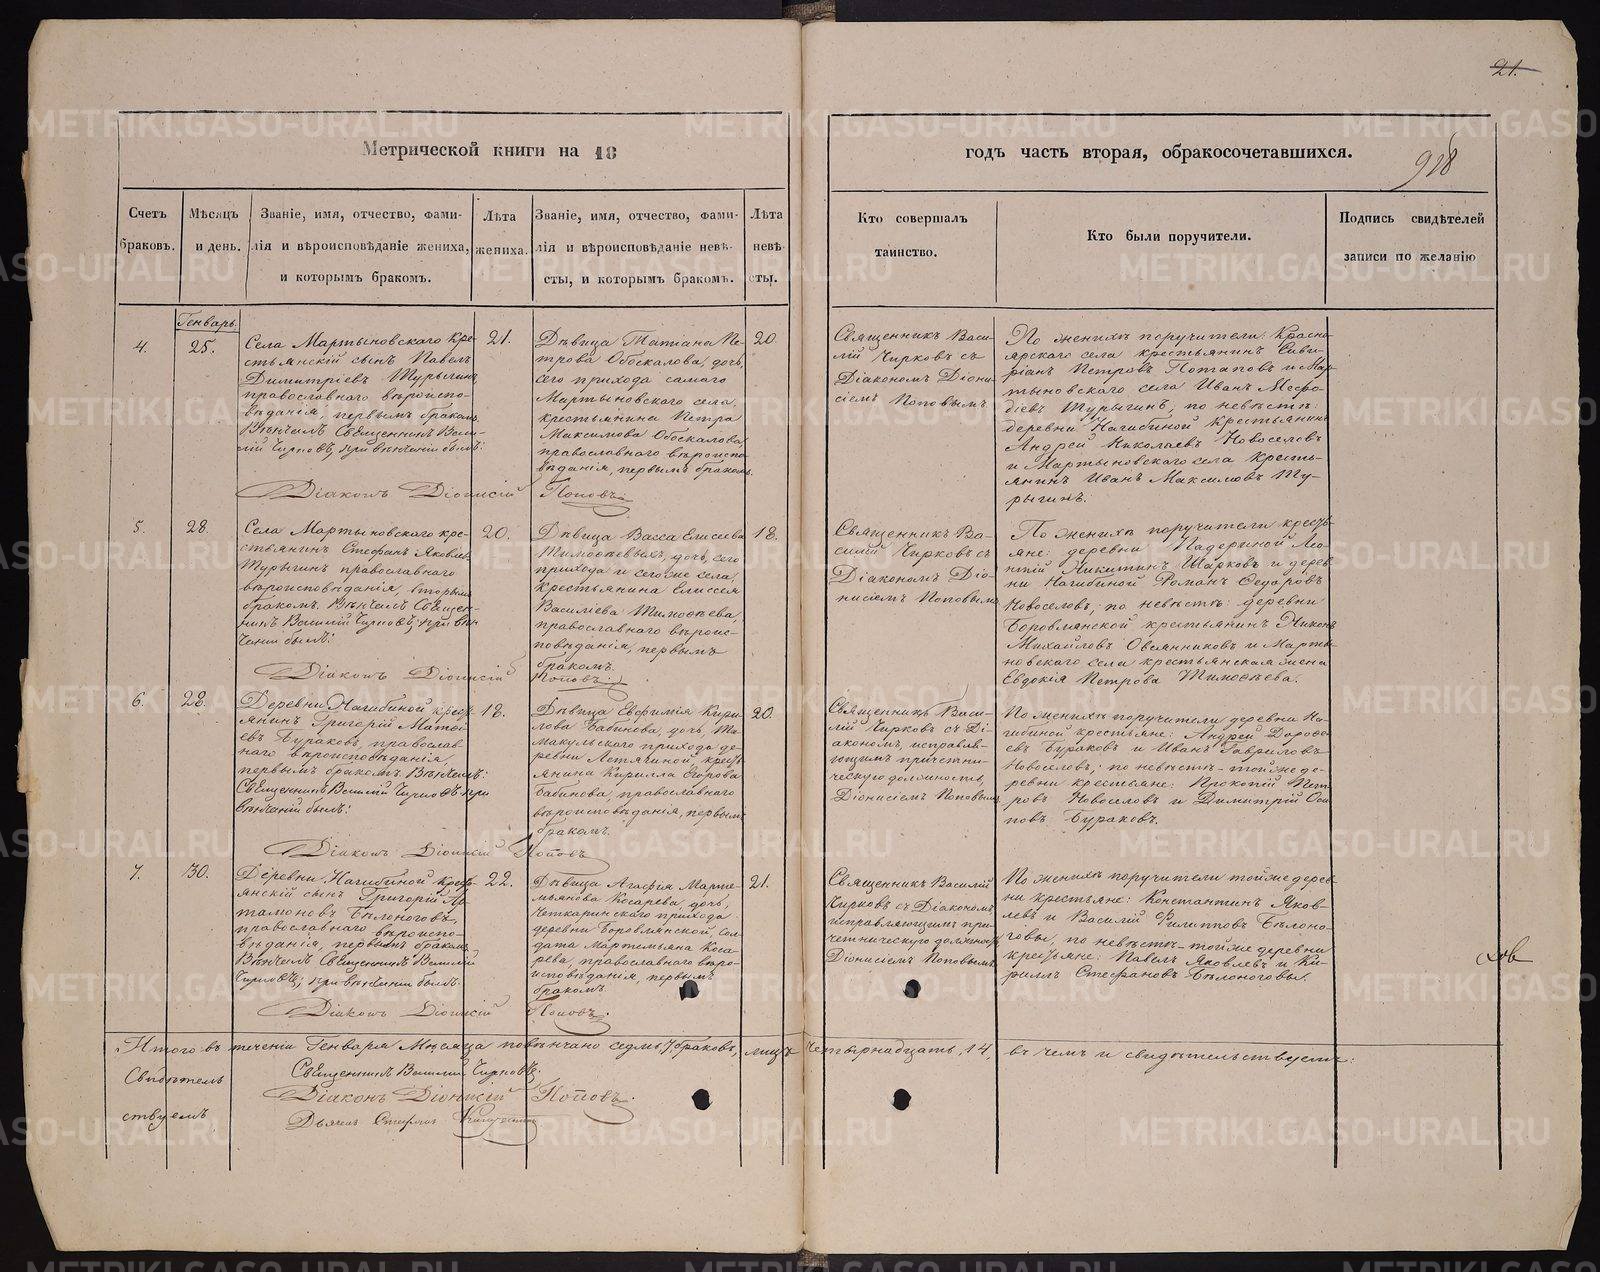 21.
Метрической книги на 18
годъ часть вторая, обракосочетавшихся.
928
Счетъ браковъ.
Мѣсяцъ и день.
Званіе, имя, отчество, фами-
лія и вѣроисповѣданіе жениха,
и которымъ бракомъ.
Лѣта жениха.
Званіе, имя, отчество, фами-
лія и вѣроисповѣданіе невѣ-
сты, и которымъ бракомъ.
Лѣта невѣ сты.
Кто совершалъ
таинство.
Кто были поручители.
Подпись свидѣтелей
записи по желанію
Генварь.
4.
25.
Села Мартыновскаго кре-
стьянскій сынъ Павелъ
Димитріевъ Турыгинъ,
православнаго вѣроиспо-
вѣданія, первымъ бракомъ.
Вѣнчалъ Священникъ Васи-
лій Чирковъ, при вѣнчаніи былъ:
21.
Дѣвица Татіана Пе-
трова Обоскалова, дочь,
сего прихода самаго
Мартыновскаго села,
крестьянина Петра
Максимова Обоскалова,
православнаго вѣроиспо-
вѣданія, первымъ бракомъ.
20.
Діаконъ Діонисій Поповъ
Священникъ Васи-
лій Чирковъ съ
Діакономъ Діони-
сіемъ Поповымъ.
По женихѣ поручители: Красно-
ярскаго села крестьянинъ Киви-
ріанъ Петровъ Потаповъ и Мар-
тыновскаго села Иванъ Меѳо-
діевъ Турыгинъ, по невѣстѣ:
деревни Нагибиной крестьянинъ
Андрей Николаевъ Новоселовъ
и Мартыновскаго села кресть-
янинъ Иванъ Максимовъ Ту-
рыгинъ.
5.
28.
Села Мартыновскаго кре-
стьянинъ Стефанъ Яковлевъ
Турыгинъ православнаго
вѣроисповѣданія, вторымъ
бракомъ. Вѣнчалъ Священ-
никъ Василій Чирковъ; при вѣн-
чаніи былъ:
20.
Дѣвица Васса Елисеева
Тимоѳеевыхъ, дочь, сего
прихода и сегоже села,
крестьянина Елиссея
Василіева Тимоѳеева,
православнаго вѣроис-
повѣданія, первымъ
бракомъ.
18.
Діаконъ Діонисій Поповъ.
Священникъ Ва-
силій Чирковъ съ
Діакономъ Діо-
нисіемъ Поповымъ
По женихѣ поручители крестъ-
яне: деревни Падериной Лео-
нтій Никитинъ Шарковъ и дерев-
ни Нагибиной Романъ Ѳедоровъ
Новоселовъ; по невѣстѣ: деревни
Боровлянской крестьянинъ Никонъ
Михайловъ Овсянниковъ и Марты-
новскаго села крестьянская жена
Евдокія Петрова Тимоѳеева.
6.
28.
Деревни Нагибиной кресть-
янинъ Григорій Матѳі-
евъ Бураковъ, православ-
наго вѣроисповѣданія,
первымъ бракомъ. Вѣнчалъ:
Священникъ Василій Чирковъ. при
вѣнчаніи былъ:
18.
Дѣвица Евфимія Кири-
лова Бабинова, дочь, Та-
макульскаго прихода де-
ревни Летягиной кресть-
янина Кирилла Егорова
Бабинова, православнаго
вѣроисповѣданія, первымъ
бракомъ.
20.
Діаконъ Діонисій Поповъ
Священникъ Васи-
лій Чирковъ съ Ді-
акономъ, исправля-
ющимъ причетни-
ческую должность,
Діонисіемъ Поповымъ
По женихѣ поручители деревни На-
гибиной крестьяне: Андрей Дорофе-
евъ Бураковъ и Иванъ Гавриловъ
Новоселовъ; по невѣстѣ - тойже де-
ревни крестьяне: Прокопій Пет-
ровъ Новоселовъ и Димитрій Оси-
повъ Бураковъ.
7.
30.
Деревни Нагибиной кресть-
янскій сынъ Григорій Ар-
тамоновъ Бѣлоноговъ,
православнаго вѣроиспо-
вѣданія, первымъ бракомъ.
Вѣнчалъ Священникъ Василій
Чирковъ; при вѣнчаніи былъ.
22.
Дѣвица Агафія Марте-
мьянова Косарева, дочь,
Четкаринскаго прихода
деревни Боровлянской, сол-
дата Мартемьяна Коса-
рева, православнаго вѣро-
исповѣданія, первымъ
бракомъ.
21.
Діаконъ Діонисій Поповъ.
Священникъ Василій
Чирковъ съ Діакономъ,
исправляющимъ при-
четническую должность,
Діонисіемъ Поповымъ.
По женихѣ поручители тойже дерев-
ни крестьяне: Константинъ Яков-
левъ и Василій Филипповъ Бѣлоно-
говы, по невѣстѣ - тойже деревни
крестьяне: Павелъ Яковлевъ и Ки-
риллъ Стефановъ Бѣлоноговы.
Итого въ теченіи Генваря Мѣсяца повѣнчано седмь, 7 браковъ, лицъ четырнадцать, 14, въ чемъ и свидѣтельствуетъ:
Свидѣтель
ствуемъ
Священникъ Василій Чирковъ.
Діаконъ Діонисій Поповъ.
Дьячекъ Стефанъ
METRIKI.GASO-URAL.RU